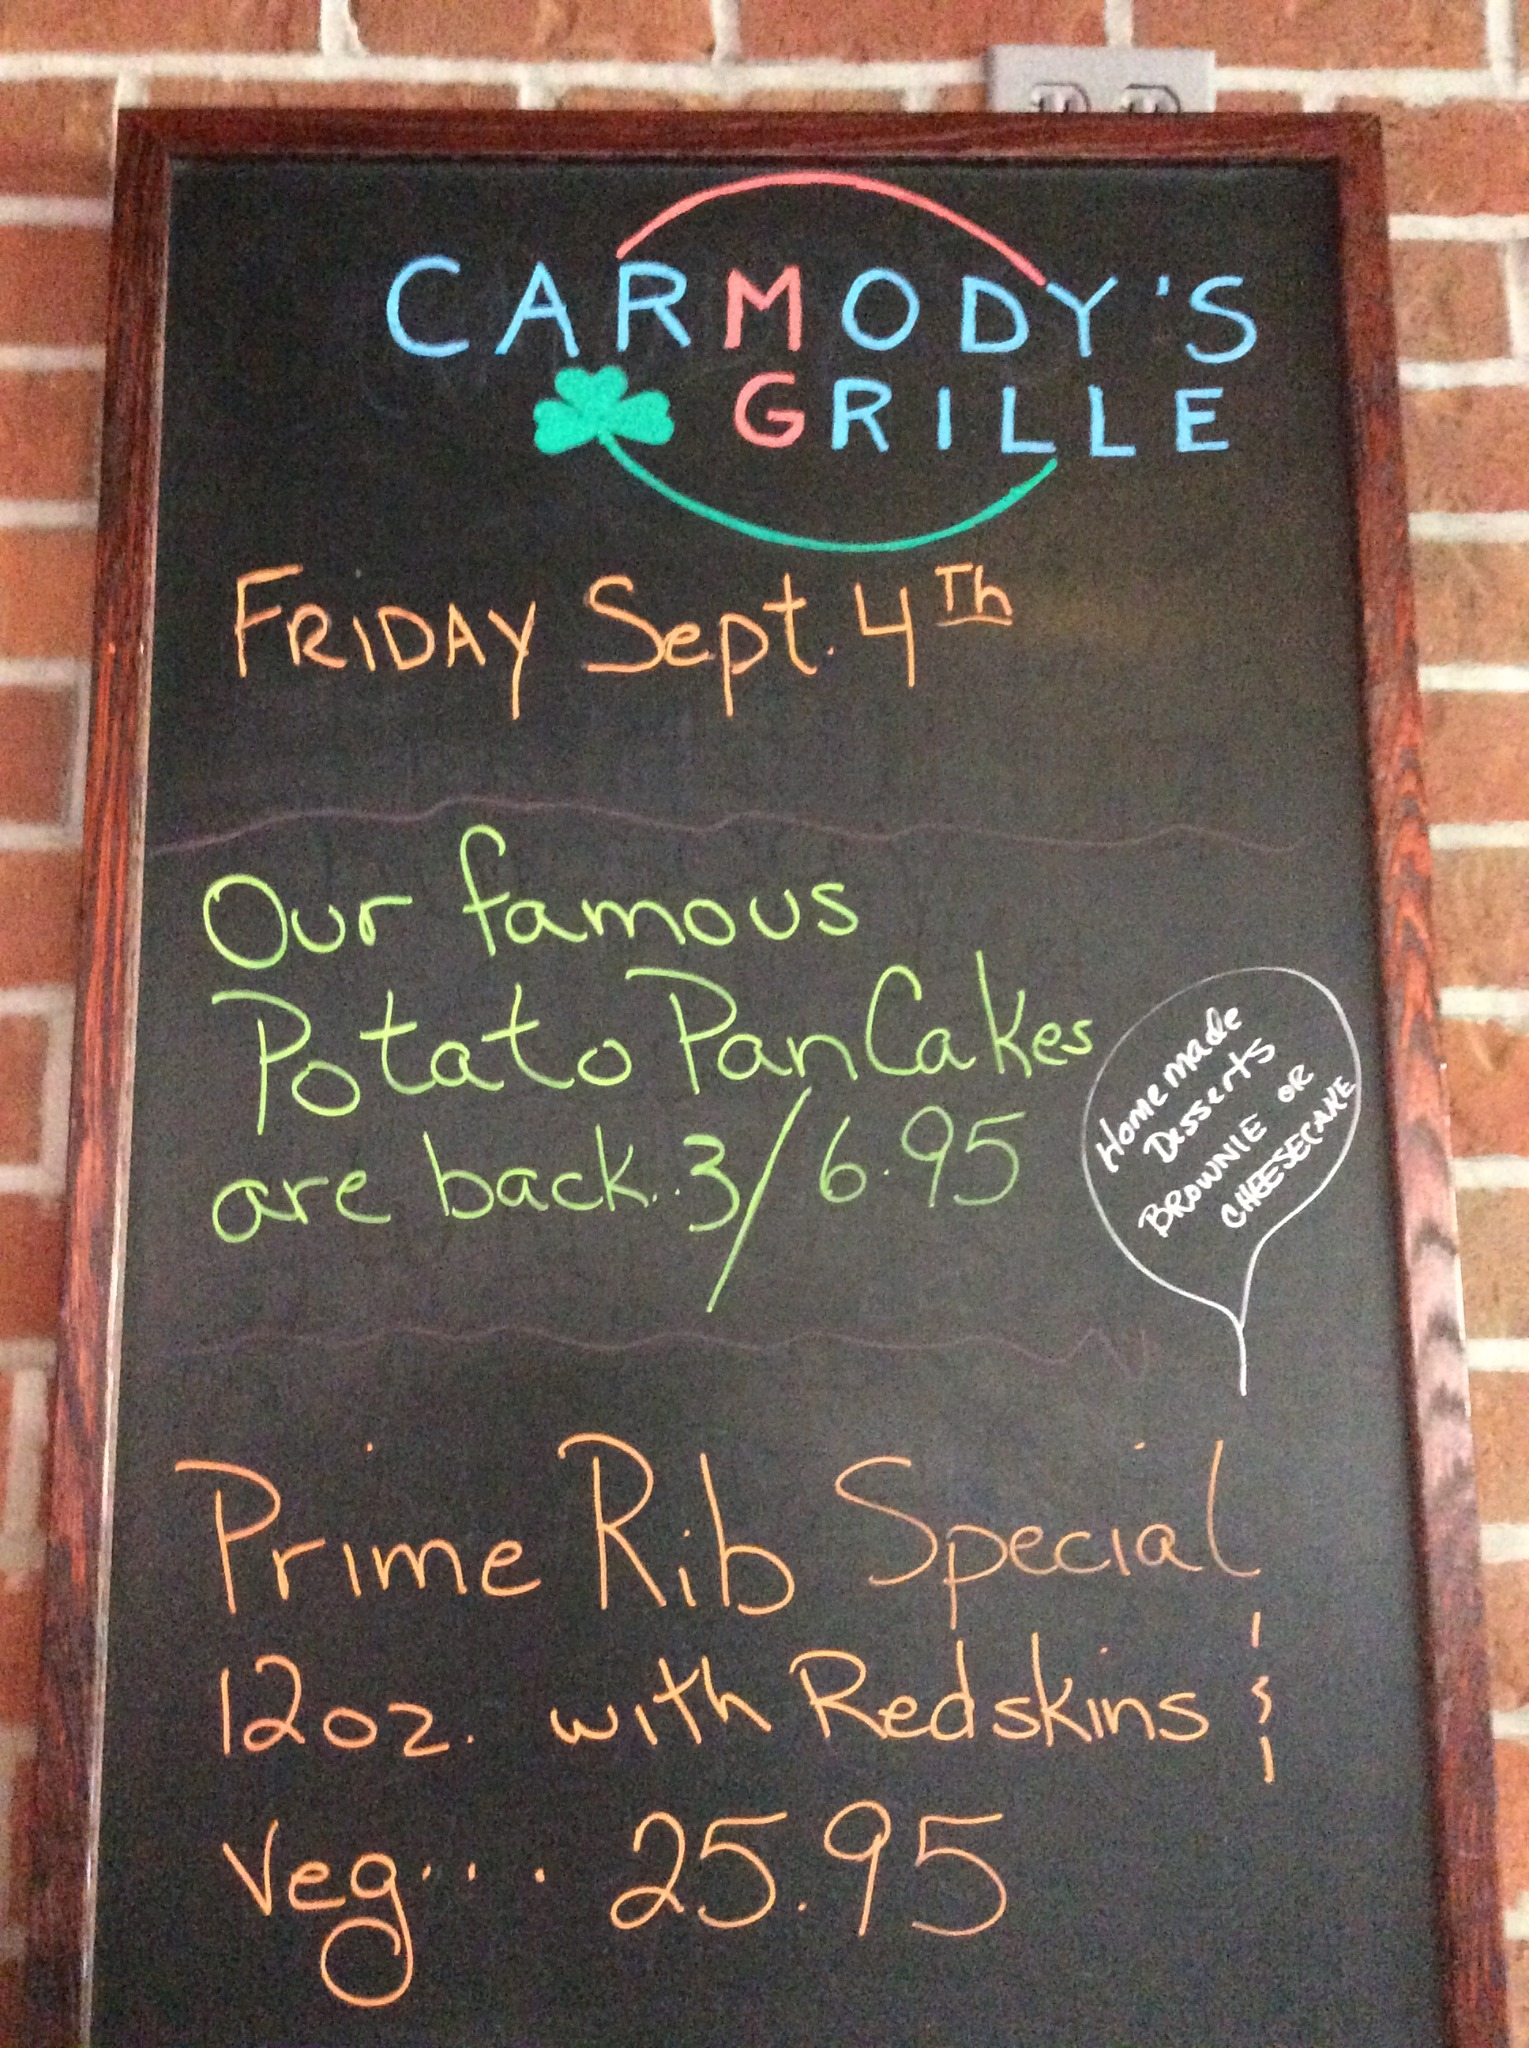 CARMODY'S
GRILLE
FRIDAY Sept. 4Th
Our famous
Potato PanCakes
are back..3/6.95
Homemade
Desserts
BROWNIE OR
CHEESECAKE
Prime Rib Special
12oz. with Redskins &
Veg.... 25.95